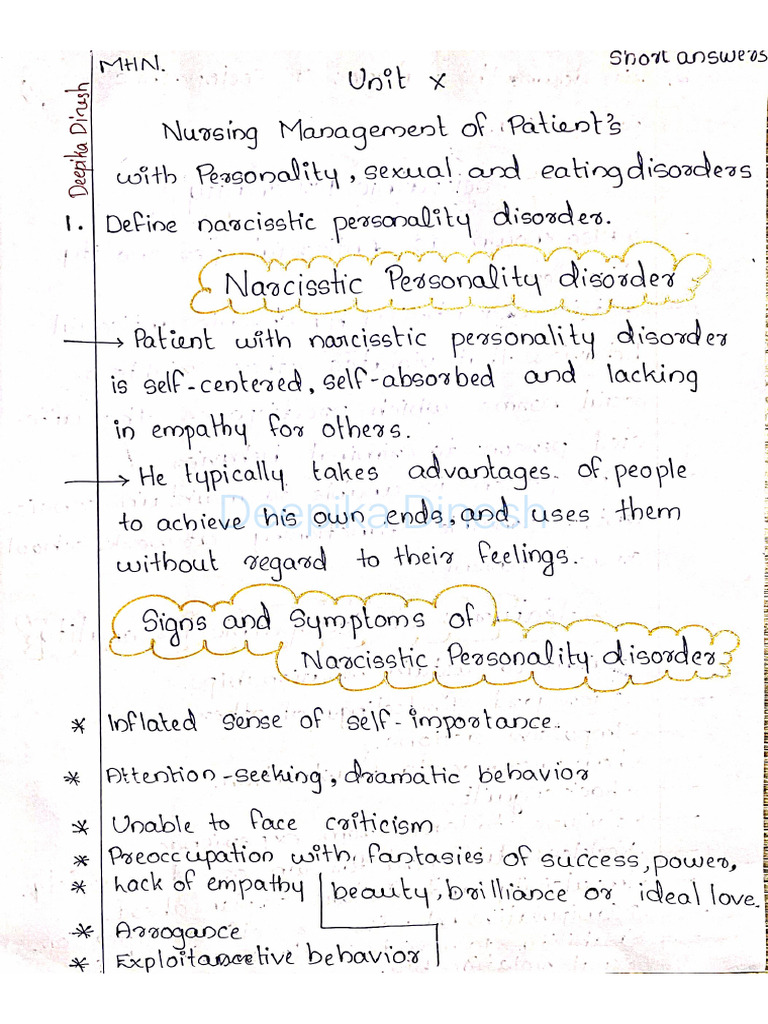 MHN.
Short answers
Unit X
Deepika Dinesh
Nursing Management of Patient's
with Personality, sexual and eating disorders
1. Define narcisstic personality disorder.
Narcisstic Personality disorder
→ Patient with narcisstic personality disorder
is self-centered, self-absorbed and lacking
in empathy for others.
→ He typically takes advantages of people
to achieve his own ends, and uses them
Deepika Dinesh
without regard to their feelings.
Signs and Symptoms of
Narcisstic Personality disorder
* Inflated sense of self-importance.
* Attention-seeking, dramatic behavior
* Unable to face criticism
* Preoccupation with fantasies of success, power,
beauty, brilliance or ideal love.
* Lack of empathy
* Arrogance
* Exploitative behavior